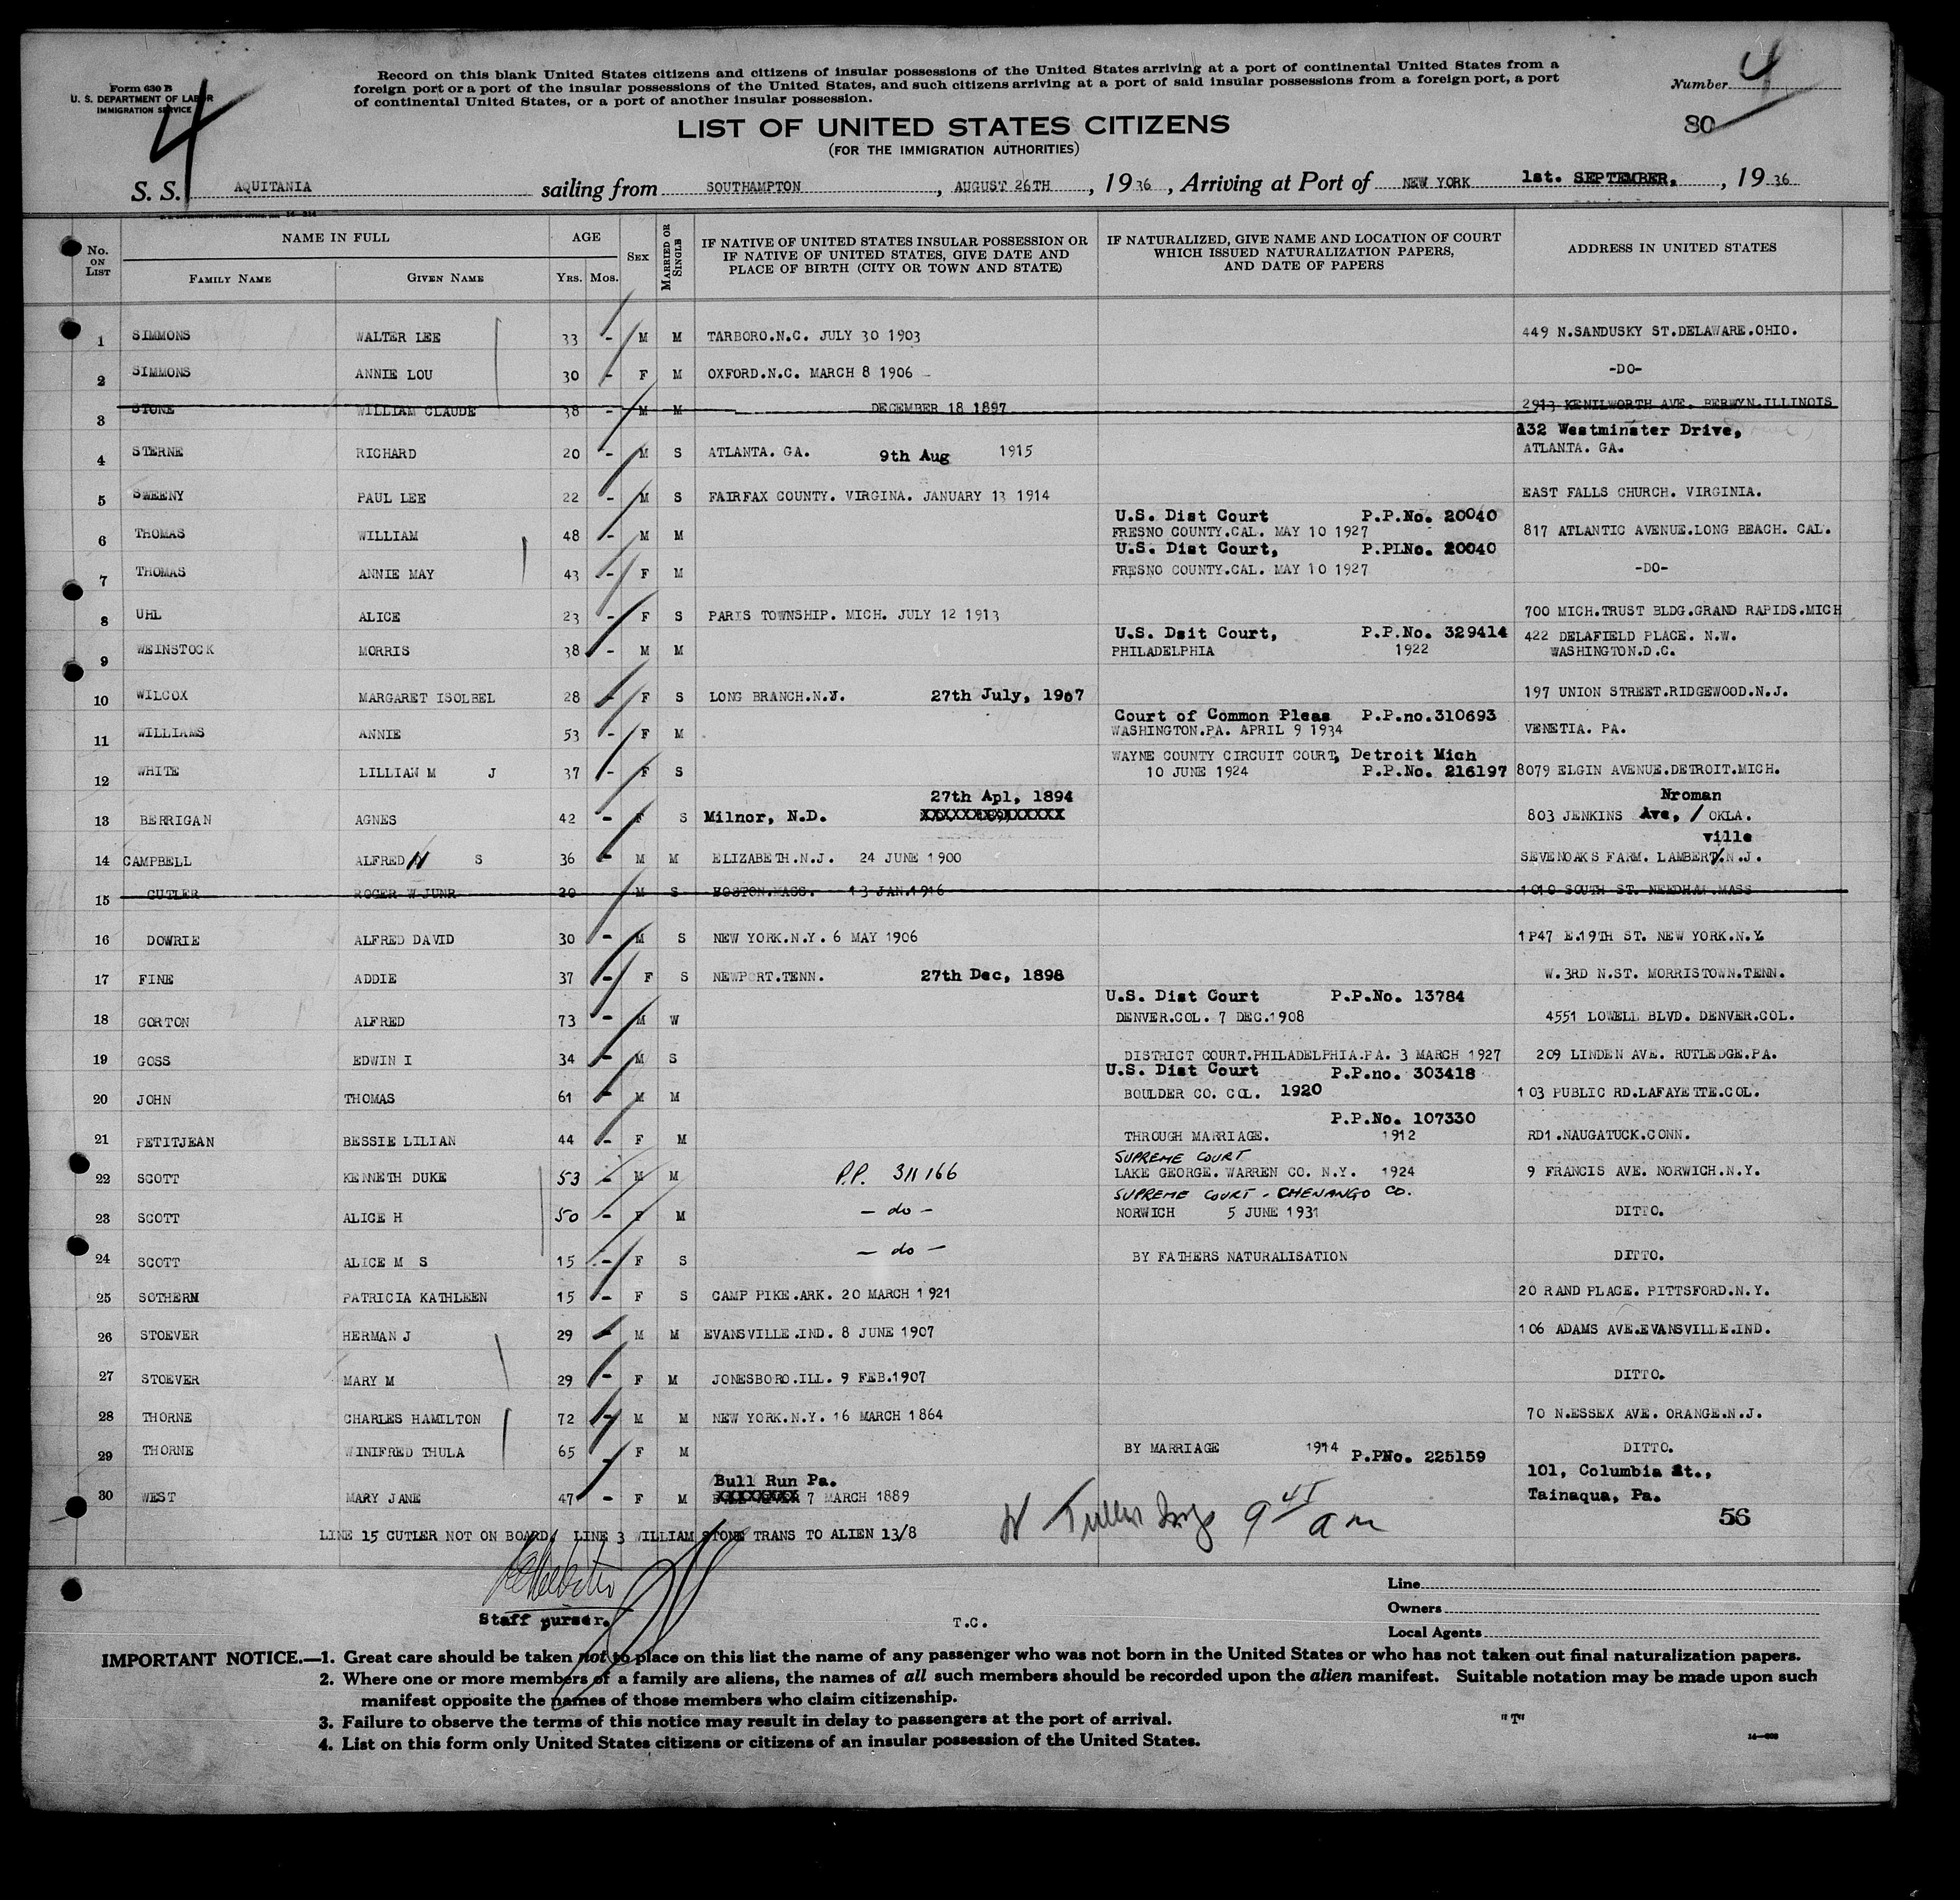 Form 630 B
U. S. DEPARTMENT OF LABOR
IMMIGRATION SERVICE
4
Record on this blank United States citizens and citizens of insular possessions of the United States arriving at a port of continental United States from a
foreign port or a port of the insular possessions of the United States, and such citizens arriving at a port of said insular possessions from a foreign port, a port
of continental United States, or a port of another insular possession.
Number 4
80
LIST OF UNITED STATES CITIZENS
(FOR THE IMMIGRATION AUTHORITIES)
S. S. AQUITANIA sailing from SOUTHAMPTON, AUGUST 26TH, 1936, Arriving at Port of NEW YORK 1st. SEPTEMBER, 1936
No. ON LIST
NAME IN FULL
FAMILY NAME GIVEN NAME
AGE
YRS. MOS.
SEX
MARRIED OR SINGLE
IF NATIVE OF UNITED STATES INSULAR POSSESSION OR
IF NATIVE OF UNITED STATES, GIVE DATE AND
PLACE OF BIRTH (CITY OR TOWN AND STATE)
IF NATURALIZED, GIVE NAME AND LOCATION OF COURT
WHICH ISSUED NATURALIZATION PAPERS,
AND DATE OF PAPERS
ADDRESS IN UNITED STATES
1 SIMMONS WALTER LEE 33 - M M TARBORO.N.C. JULY 30 1903 449 N.SANDUSKY ST.DELAWARE.OHIO.
2 SIMMONS ANNIE LOU 30 - F M OXFORD.N.C. MARCH 8 1906 -DO-
3 STONE WILLIAM CLAUDE 38 - M M DECEMBER 18 1897 2913 KENILWORTH AVE. BERWYN.ILLINOIS
132 Westminster Drive,
4 STERNE RICHARD 20 - M S ATLANTA. GA. 9th Aug 1915 ATLANTA. GA.
5 SWEENY PAUL LEE 22 - M S FAIRFAX COUNTY. VIRGINA. JANUARY 13 1914 EAST FALLS CHURCH. VIRGINIA.
U.S. Dist Court P.P.No. 20040
6 THOMAS WILLIAM 48 - M M FRESNO COUNTY.CAL. MAY 10 1927 817 ATLANTIC AVENUE.LONG BEACH. CAL.
U.S. Dist Court, P.PLNo. 20040
7 THOMAS ANNIE MAY 43 - F M FRESNO COUNTY.CAL. MAY 10 1927 -DO-
8 UHL ALICE 23 - F S PARIS TOWNSHIP. MICH. JULY 12 1913 700 MICH.TRUST BLDG.GRAND RAPIDS.MICH
U.S. Dsit Court, P.P.No. 329414 422 DELAFIELD PLACE. N.W.
9 WEINSTOCK MORRIS 38 - M M PHILADELPHIA 1922 WASHINGTON.D.C.
10 WILCOX MARGARET ISOLBEL 28 - F S LONG BRANCH.N.J. 27th July, 1907 197 UNION STREET.RIDGEWOOD.N.J.
Court of Common Pleas P.P.no.310693
11 WILLIAMS ANNIE 53 - F M WASHINGTON.PA. APRIL 9 1934 VENETIA. PA.
WAYNE COUNTY CIRCUIT COURT, Detroit Mich
12 WHITE LILLIAN M J 37 - F S 10 JUNE 1924 P.P.No. 216197 8079 ELGIN AVENUE.DETROIT.MICH.
27th Apl, 1894 Nroman
13 BERRIGAN AGNES 42 - F S Milnor, N.D. XXXXXXXXXXXXXXX 803 JENKINS Ave, / OKLA.
ville
14 CAMPBELL ALFRED H S 36 - M M ELIZABETH.N.J. 24 JUNE 1900 SEVENOAKS FARM. LAMBERT.N.J.
15 CUTLER ROGER W JUNR 20 M S BOSTON.MASS. 13 JAN.1916 1010 SOUTH ST. NEEDHAM.MASS
16 DOWRIE ALFRED DAVID 30 - M S NEW YORK.N.Y. 6 MAY 1906 1P47 E.19TH ST. NEW YORK.N.Y.
17 FINE ADDIE 37 - F S NEWPORT.TENN. 27th Dec, 1898 W.3RD N.ST. MORRISTOWN.TENN.
U.S. Dist Court P.P.No. 13784
18 GORTON ALFRED 73 - M W DENVER.COL. 7 DEC.1908 4551 LOWELL BLVD. DENVER.COL.
19 GOSS EDWIN I 34 - M S DISTRICT COURT.PHILADELPHIA.PA. 3 MARCH 1927 209 LINDEN AVE. RUTLEDGE.PA.
U.S. Dist Court P.P.no. 303418
20 JOHN THOMAS 61 - M M BOULDER CO. COL. 1920 103 PUBLIC RD.LAFAYETTE.COL.
P.P.No. 107330
21 PETITJEAN BESSIE LILIAN 44 - F M THROUGH MARRIAGE. 1912 RD1.NAUGATUCK.CONN.
SUPREME COURT
22 SCOTT KENNETH DUKE 53 - M M P.P. 311166 LAKE GEORGE. WARREN CO. N.Y. 1924 9 FRANCIS AVE. NORWICH.N.Y.
SUPREME COURT - CHENANGO CO.
23 SCOTT ALICE H 50 - F M - do - NORWICH 5 JUNE 1931 DITTO.
24 SCOTT ALICE M S 15 - F S - do - BY FATHERS NATURALISATION DITTO.
25 SOTHERN PATRICIA KATHLEEN 15 - F S CAMP PIKE.ARK. 20 MARCH 1921 20 RAND PLACE. PITTSFORD.N.Y.
26 STOEVER HERMAN J 29 - M M EVANSVILLE.IND. 8 JUNE 1907 106 ADAMS AVE.EVANSVILLE.IND.
27 STOEVER MARY M 29 - F M JONESBORO.ILL. 9 FEB.1907 DITTO.
28 THORNE CHARLES HAMILTON 72 - M M NEW YORK.N.Y. 16 MARCH 1864 70 N.ESSEX AVE. ORANGE.N.J.
29 THORNE WINIFRED THULA 65 - F M BY MARRIAGE 1914 P.PNo. 225159 DITTO.
Bull Run Pa. 101, Columbia St.,
30 WEST MARY JANE 47 - F M XXXXXXXX 7 MARCH 1889 Tainaqua, Pa.
56
LINE 15 CUTLER NOT ON BOARD, LINE 3 WILLIAM STONE TRANS TO ALIEN 13/8
9 45 am
Staff purser.
T.C.
Line
Owners
Local Agents
IMPORTANT NOTICE.—1. Great care should be taken not to place on this list the name of any passenger who was not born in the United States or who has not taken out final naturalization papers.
2. Where one or more members of a family are aliens, the names of all such members should be recorded upon the alien manifest. Suitable notation may be made upon such
manifest opposite the names of those members who claim citizenship.
3. Failure to observe the terms of this notice may result in delay to passengers at the port of arrival.
"T"
4. List on this form only United States citizens or citizens of an insular possession of the United States.